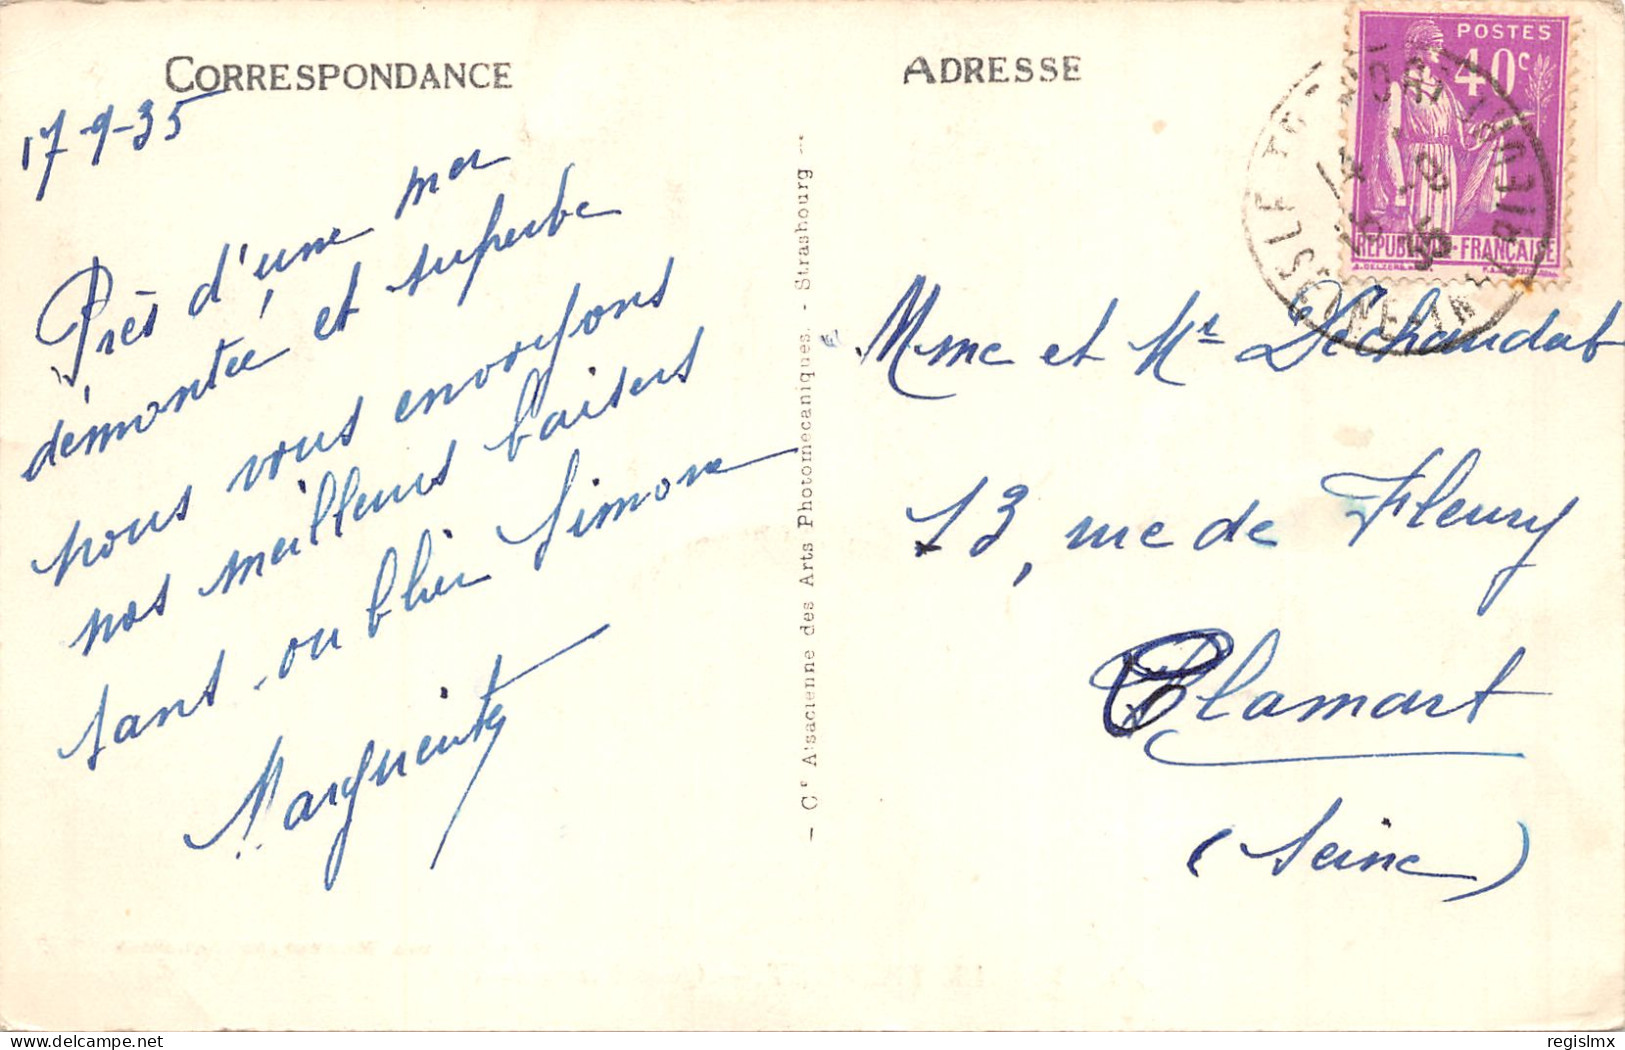 CORRESPONDANCE
17-9-35
Près d'une mer
démontée et superbe
nous vous envoyons
nos meilleurs baisers
sans oublier Simone
Marguerite
- Cie Alsacienne des Arts Photomécaniques. - Strasbourg -
ADRESSE
POSTES
40c
RÉPUBLIQUE-FRANÇAISE
Mme et Mr Dechaudat
13, rue de Fleury
Clamart
(Seine)
regislmx